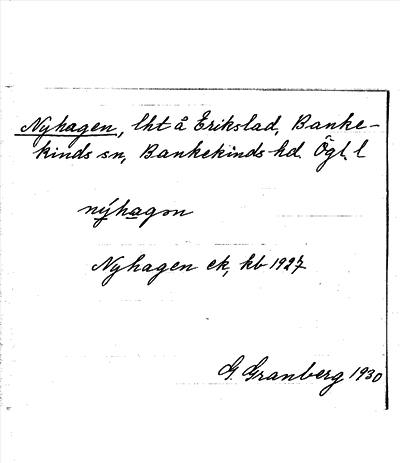 Nyhagen, lht å Erikslad, Banke-
kinds sn, Bankekinds hd. Ögl. l
nýhagon
Nyhagen ek, kb 1927
G. Granberg 1930